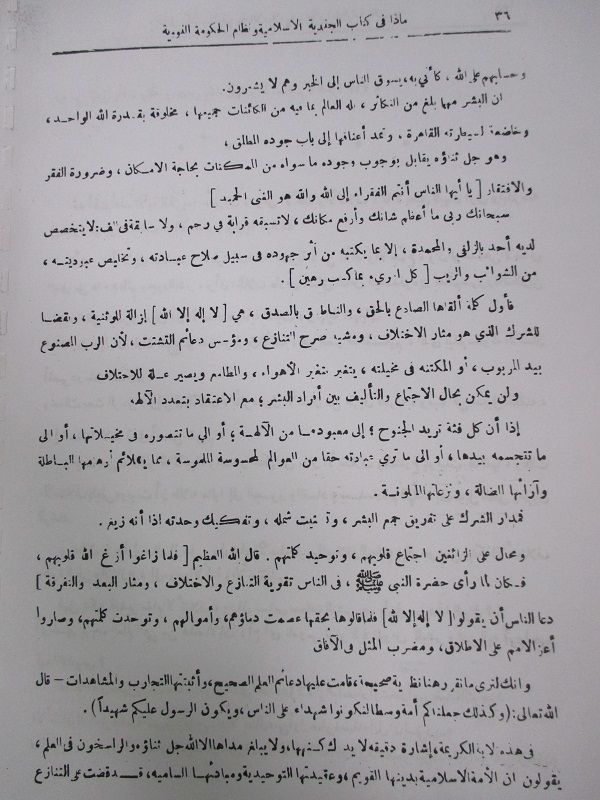 ٣٦ ماذا فى كتاب الجندية الاسلامية ونظام الحكومة القومية
وحسابهم على الله ، كأني به ، يسوق الناس إلى الخير وهم لا يشعرون.
ان البشر مهما بلغ من التكاثر ، بله العالم بما فيه من الكائنات جميعها ، مخلوقة بقدرة الله الواحد ،
وخاضعة لسيطرته القاهرة ، وتمد أعناقها إلى باب جوده المطلق ،
وهو جل ثناؤه يقابل بوجوب وجوده ما سواه من الممكنات بحاجة الامكان ، وضرورة الفقر
والافتقار [ يا أيها الناس أنتم الفقراء إلى الله والله هو الغنى الحميد ]
سبحانك ربى ما أعظم شانك وأرفع مكانك ، لاتسبقه قرابة في رحم ، ولا سابقة لا يتخصص
لديه أحد بالزلفى والمحمدة ، إلا بما يكتسبه من أثر جهوده فى سبيل صلاح عبادته ، وتخليص عبوديته ،
من الشوائب والريب [ كل امرىء بما كسب رهين ] .
فأول كلمة ألقاها الصادع بالحق ، والناطق بالصدق ، هي [ لا إله إلا الله ] إزالة للوثنية ، ونقضا
للشرك الذي هو مثار الاختلاف ، ومشيد صرح التنازع ، ومؤسس دعائم التشتت ، لأن الرب المصنوع
بيد المربوب ، أو المكتنه فى مخيلته ، يتغير بتغير الأهواء ، والمطامع ويصير علة للاختلاف
ولن يمكن بحال الاجتماع والتأليف بين أفراد البشر ؛ مع الاعتقاد بتعدد الآلهة.
إذا أن كل فئة تريد الجنوح ؛ إلى معبودها من الآلهة ؛ أو الي ما تتصوره فى مخيلاتها ، أو الى
ما تتجسمه بيدها ، أو الى ما تري عبادته حقا من العوالم المحسوسة الملموسة ، مما يلائم أوهامها الباطلة
وآرائها الضالة ، ونزعاتها الملونة .
فمدار الشرك على تفريق جمع البشر ، وتشتيت شمله ، وتفكيك وحدته اذا أنه زيغ .
ومحال على الزائغين اجتماع قلوبهم ، وتوحيد كلمتهم . قال الله العظيم [ فلما زاغوا أزغ الله قلوبهم ،
فكان لما رأى حضرة النبي ﷺ ، فى الناس تقوية التنازع والاختلاف ، ومثار البعد والتفرقة ]
دعا الناس أن يقولوا [ لا إله إلا الله ] فلما قالوها بحقها عصمت دماؤهم ، وأموالهم ، وتوحدت كلمتهم ، وصاروا
أعز الامم على الاطلاق ، ومضرب المثل فى الآفاق
وانك لترى ما نقرر هنا نظرية صحيحة ، قامت عليها دعائم العلم الصحيح ، وأثبتتها التجارب والمشاهدات – قال
الله تعالى : (وكذلك جعلناكم أمة وسطا لتكونوا شهداء على الناس ، ويكون الرسول عليكم شهيداً) .
فى هذه الآية الكريمة ، إشارة دقيقة لا يدرك كنهها ، ولا يبلغ مداها الا الله جل ثناؤه والراسخون فى العلم ،
يقولون ان الأمة الاسلامية بدينها القويم ، وعقيدتها التوحيدية ومبادئها الساميه ، قد قضت على التنازع